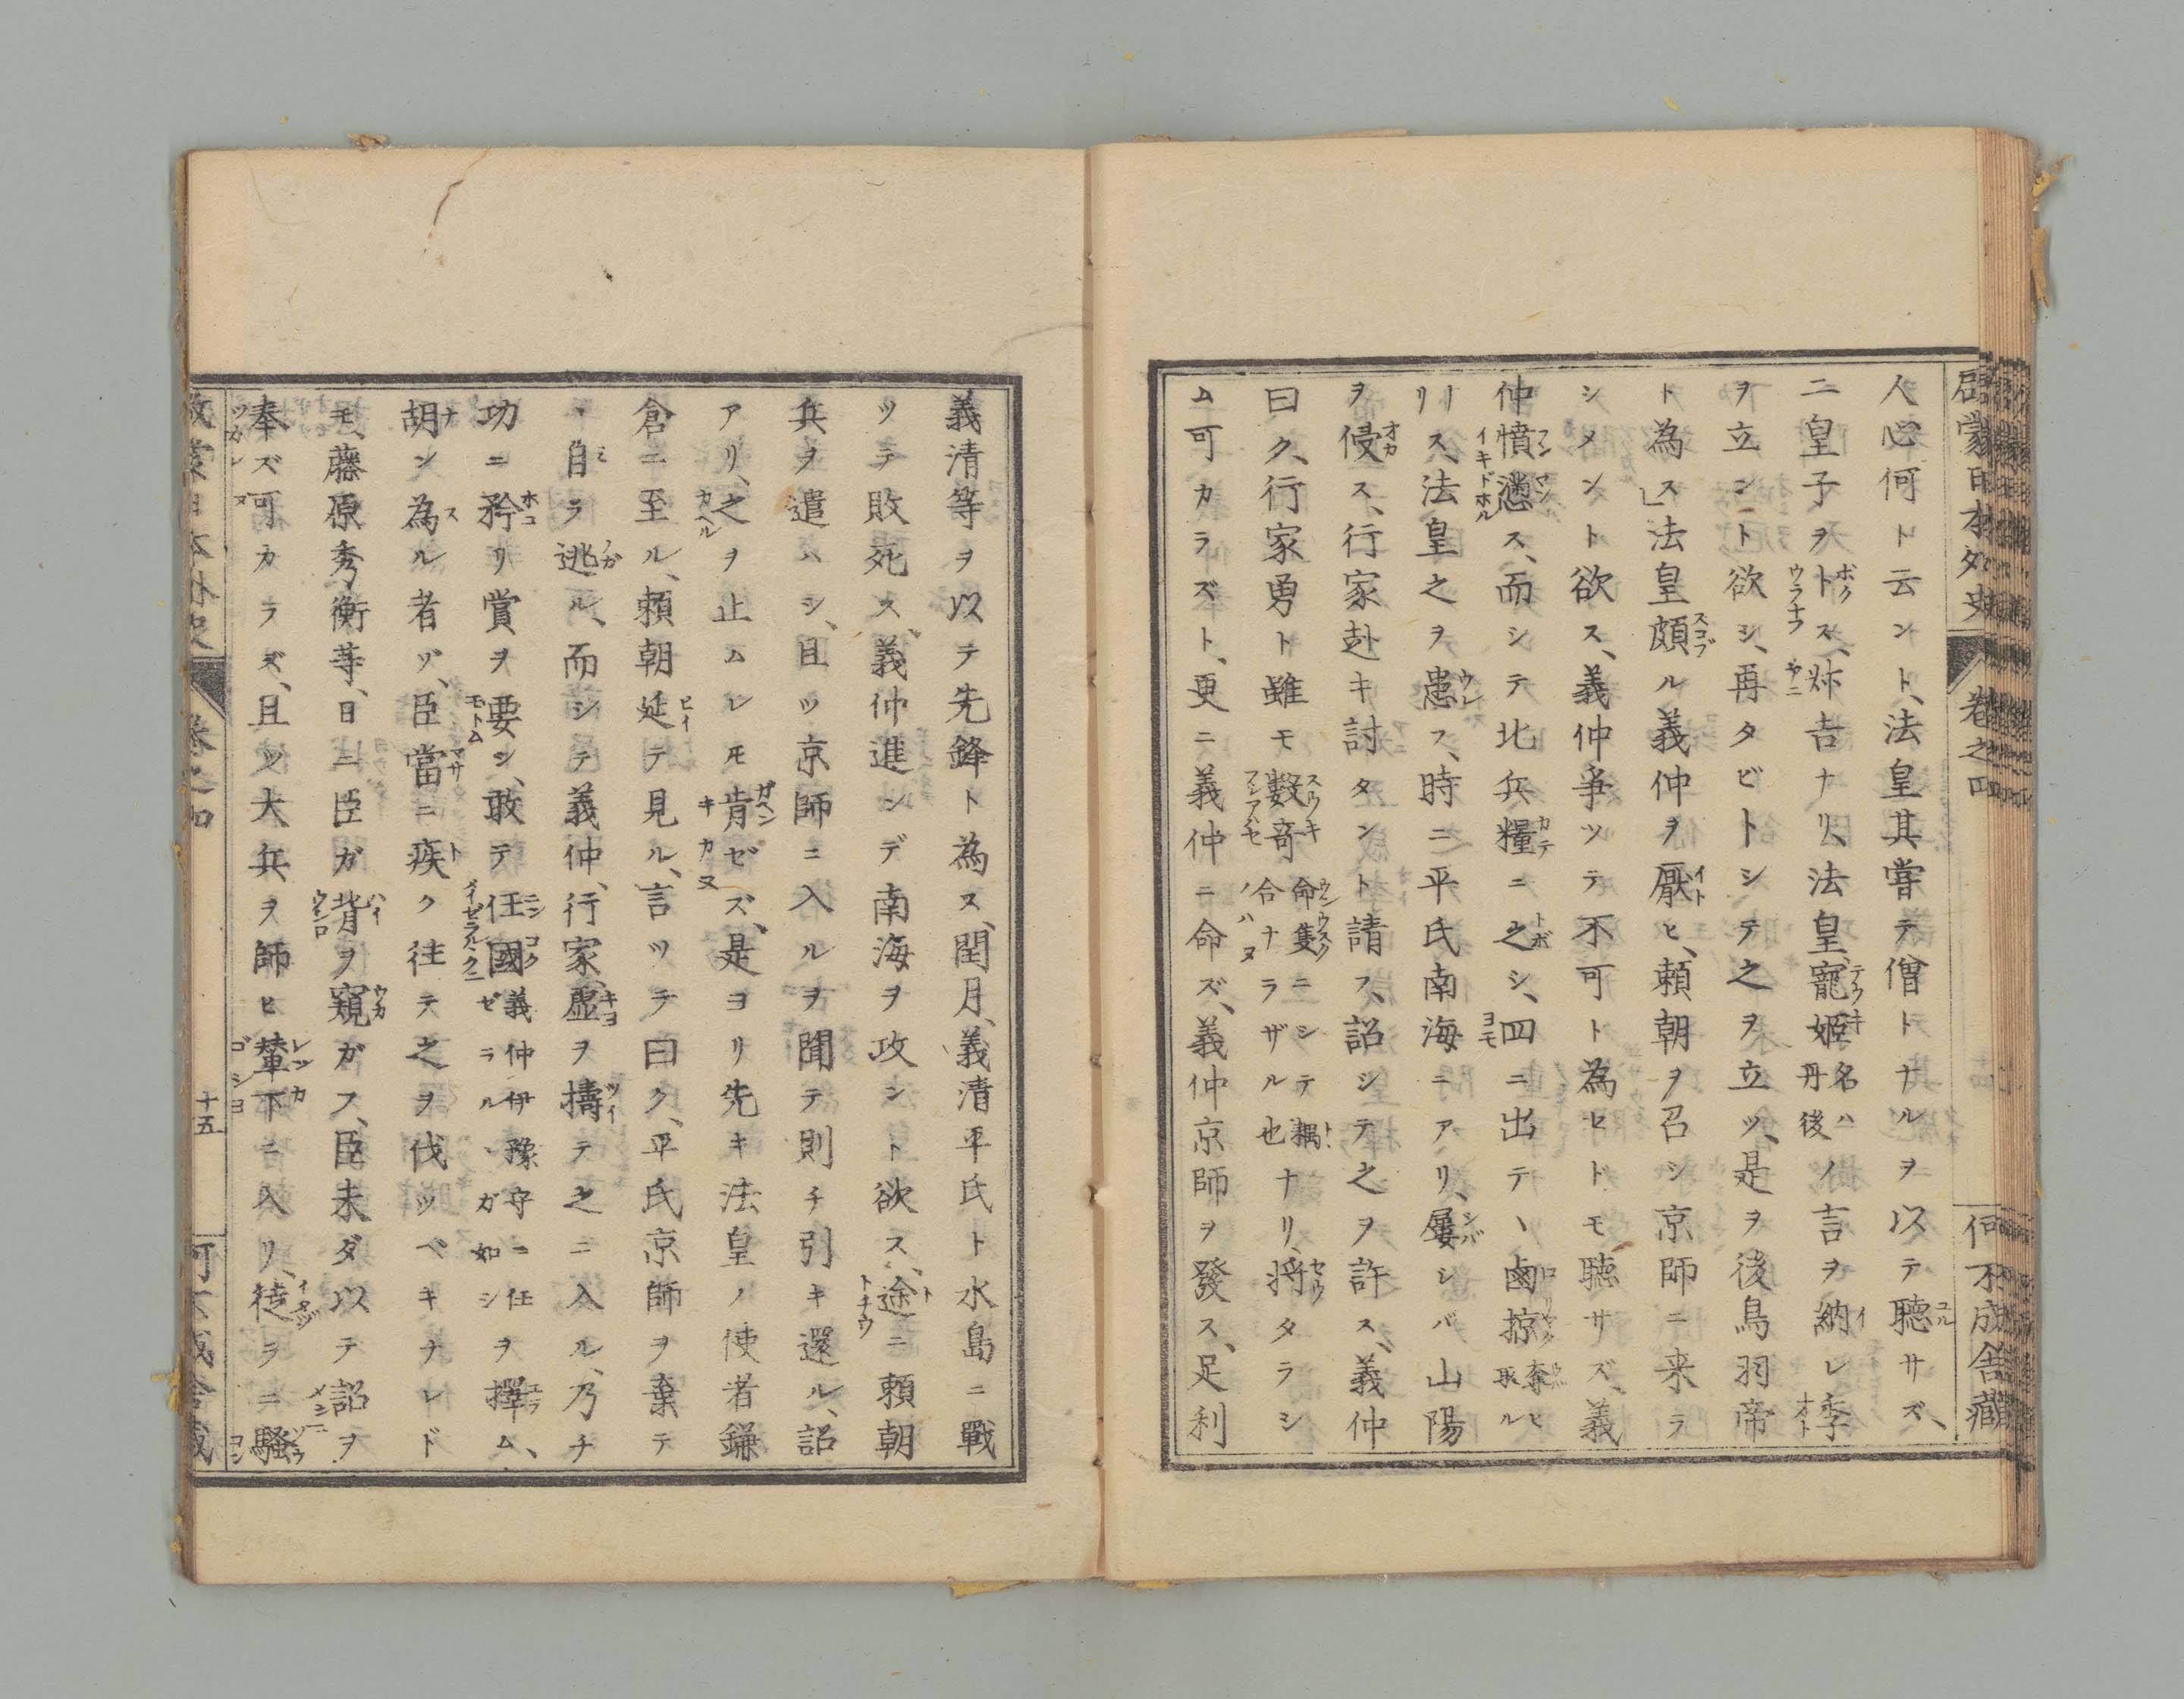 啓蒙日本外史 卷之四 何不成舎藏
人心何ト云ント、法皇其嘗テ僧トナルヲ以テ聴サズ、
二皇子ヲトス、炑吉ナリ、法皇寵姫名ハ丹後ノ言ヲ納レ季
ヲ立ント欲シ、再タビトシテ之ヲ立ツ、是ヲ後鳥羽帝
ト為ス」法皇頗ル義仲ヲ厭ヒ、頼朝ヲ召シ京師ニ来ラ
シメント欲ス、義仲爭ツテ不可ト為ヒドモ聴サズ、義
仲憤懣ス、而シテ北兵糧ニ之シ、四ニ出テヽ鹵掠奪ヒ取ル
リス、法皇之ヲ患フ、時ニ平氏南海ニアリ、屢シバ山陽
ヲ侵ス、行家赴キ討タント請フ、詔シテ之ヲ許ス、義仲
曰ク、行家勇ト雖モ數奇命隻ニシテ耦ナリ合ナラザル也、将タラシ
ム可カラズト、更ニ義仲ニ命ズ、義仲京師ヲ發ス、足利
義清等ヲ以テ先鋒ト為ス、閏月、義清平氏ト水島ニ戰
ツテ敗死ス、義仲進ンデ南海ヲ攻シト欲ス、途ニ頼朝
兵ヲ遣ハシ、且ツ京師ニ入ルヲ聞テ則チ引キ還ル、詔
アリ、之ヲ止ムレモ肯ゼズ、是ヨリ先キ法皇ノ使者鎌
倉ニ至ル、頼朝延テ見ル、言ツテ曰ク、平氏京師ヲ棄テ
ヽ自ラ逃ル、而シテ義仲、行家、虚ヲ擣テ之ニ入ル、乃チ
功ニ矜リ賞ヲ要シ、敢テ任國義仲伊豫守ニ任ゼラルヽガ如シヲ擇ム、
胡ン為ル者ゾ、臣當ニ疾ク往テ之ヲ伐ツベキナレド
モ、藤原秀衡等、日ニ臣ガ背ヲ窺ガフ、臣未ダ以テ詔ヲ
奉ズ可カラズ、且ツ大兵ヲ師ヒ輦下ニ入リ、徒ラニ騷
卷之四 十五